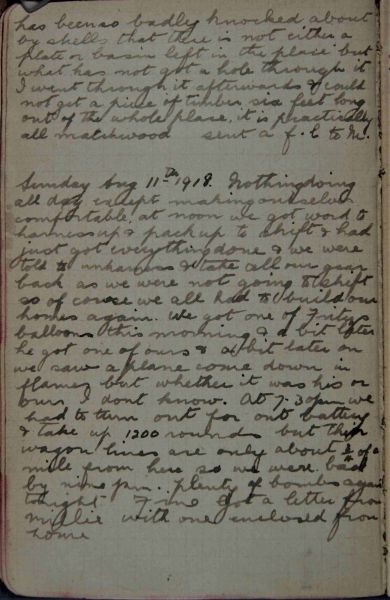 has been so badly knocked about
by shells that there is not either a
plate or basin left in the place but
what has not got a hole through it
I went through it afterwards & could
not get a piece of timber six feet long
out of the whole place, it is practically
all matchwood sent a f. c to M.
Sunday Aug 11th 1918. Nothing doing
all day except making ourselves
comfortable, at noon we got word to
harness up & pack up to shift & had
just got everything done & we were
told to unharness & take all our gear
back as we were not going to shift
so of course we all had to build our
homes again. We got one of Fritzs
balloons this morning & a bit later
he got one of ours & a bit later on
we saw a plane come down in
flames but whether it was his or
ours I dont know. At 7.30 pm we
had to turn out for our battery
& take up 1200 rounds but their
wagon lines are only about of a
mile from here so we were back
by nine pm. plenty of bombs again
tonight got a letter from
Millie with one enclosed from
home